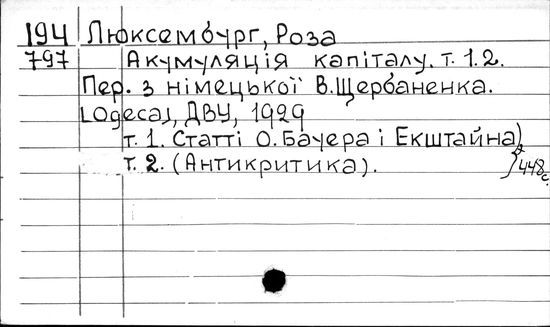 194 Люксембург, Роза
797 Акумуляція капіталу. т. 1.2.
Пер. з німецької В. Щербаненка.
[Одеса], ДВУ, 1929
т. 1. Статті О. Бауера і Екштайна)
т. 2. (Антикритика).
448 с.